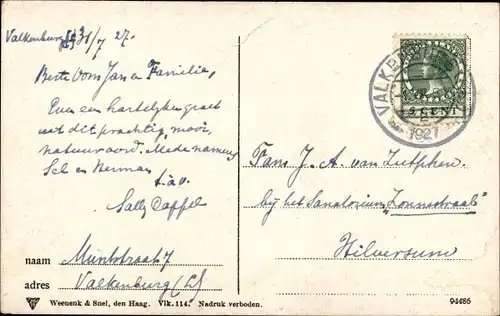 Valkenburg 31/7 27.
Beste Oom Jan en Familie,
Even een hartelijken groet
uit dit prachtig mooi
natuuroord. Mede namens
Sel en Herman
t.à.v.
Sally Cappel
naam Muntstraat 7
adres Valkenburg (L)
Weenenk & Snel, den Haag. Vlk. 114. Nadruk verboden.
VALK
1927
5 CENT
Fam. J. A. van Zutphen
bij het Sanatorium "Zonnestraal"
Hilversum
94486